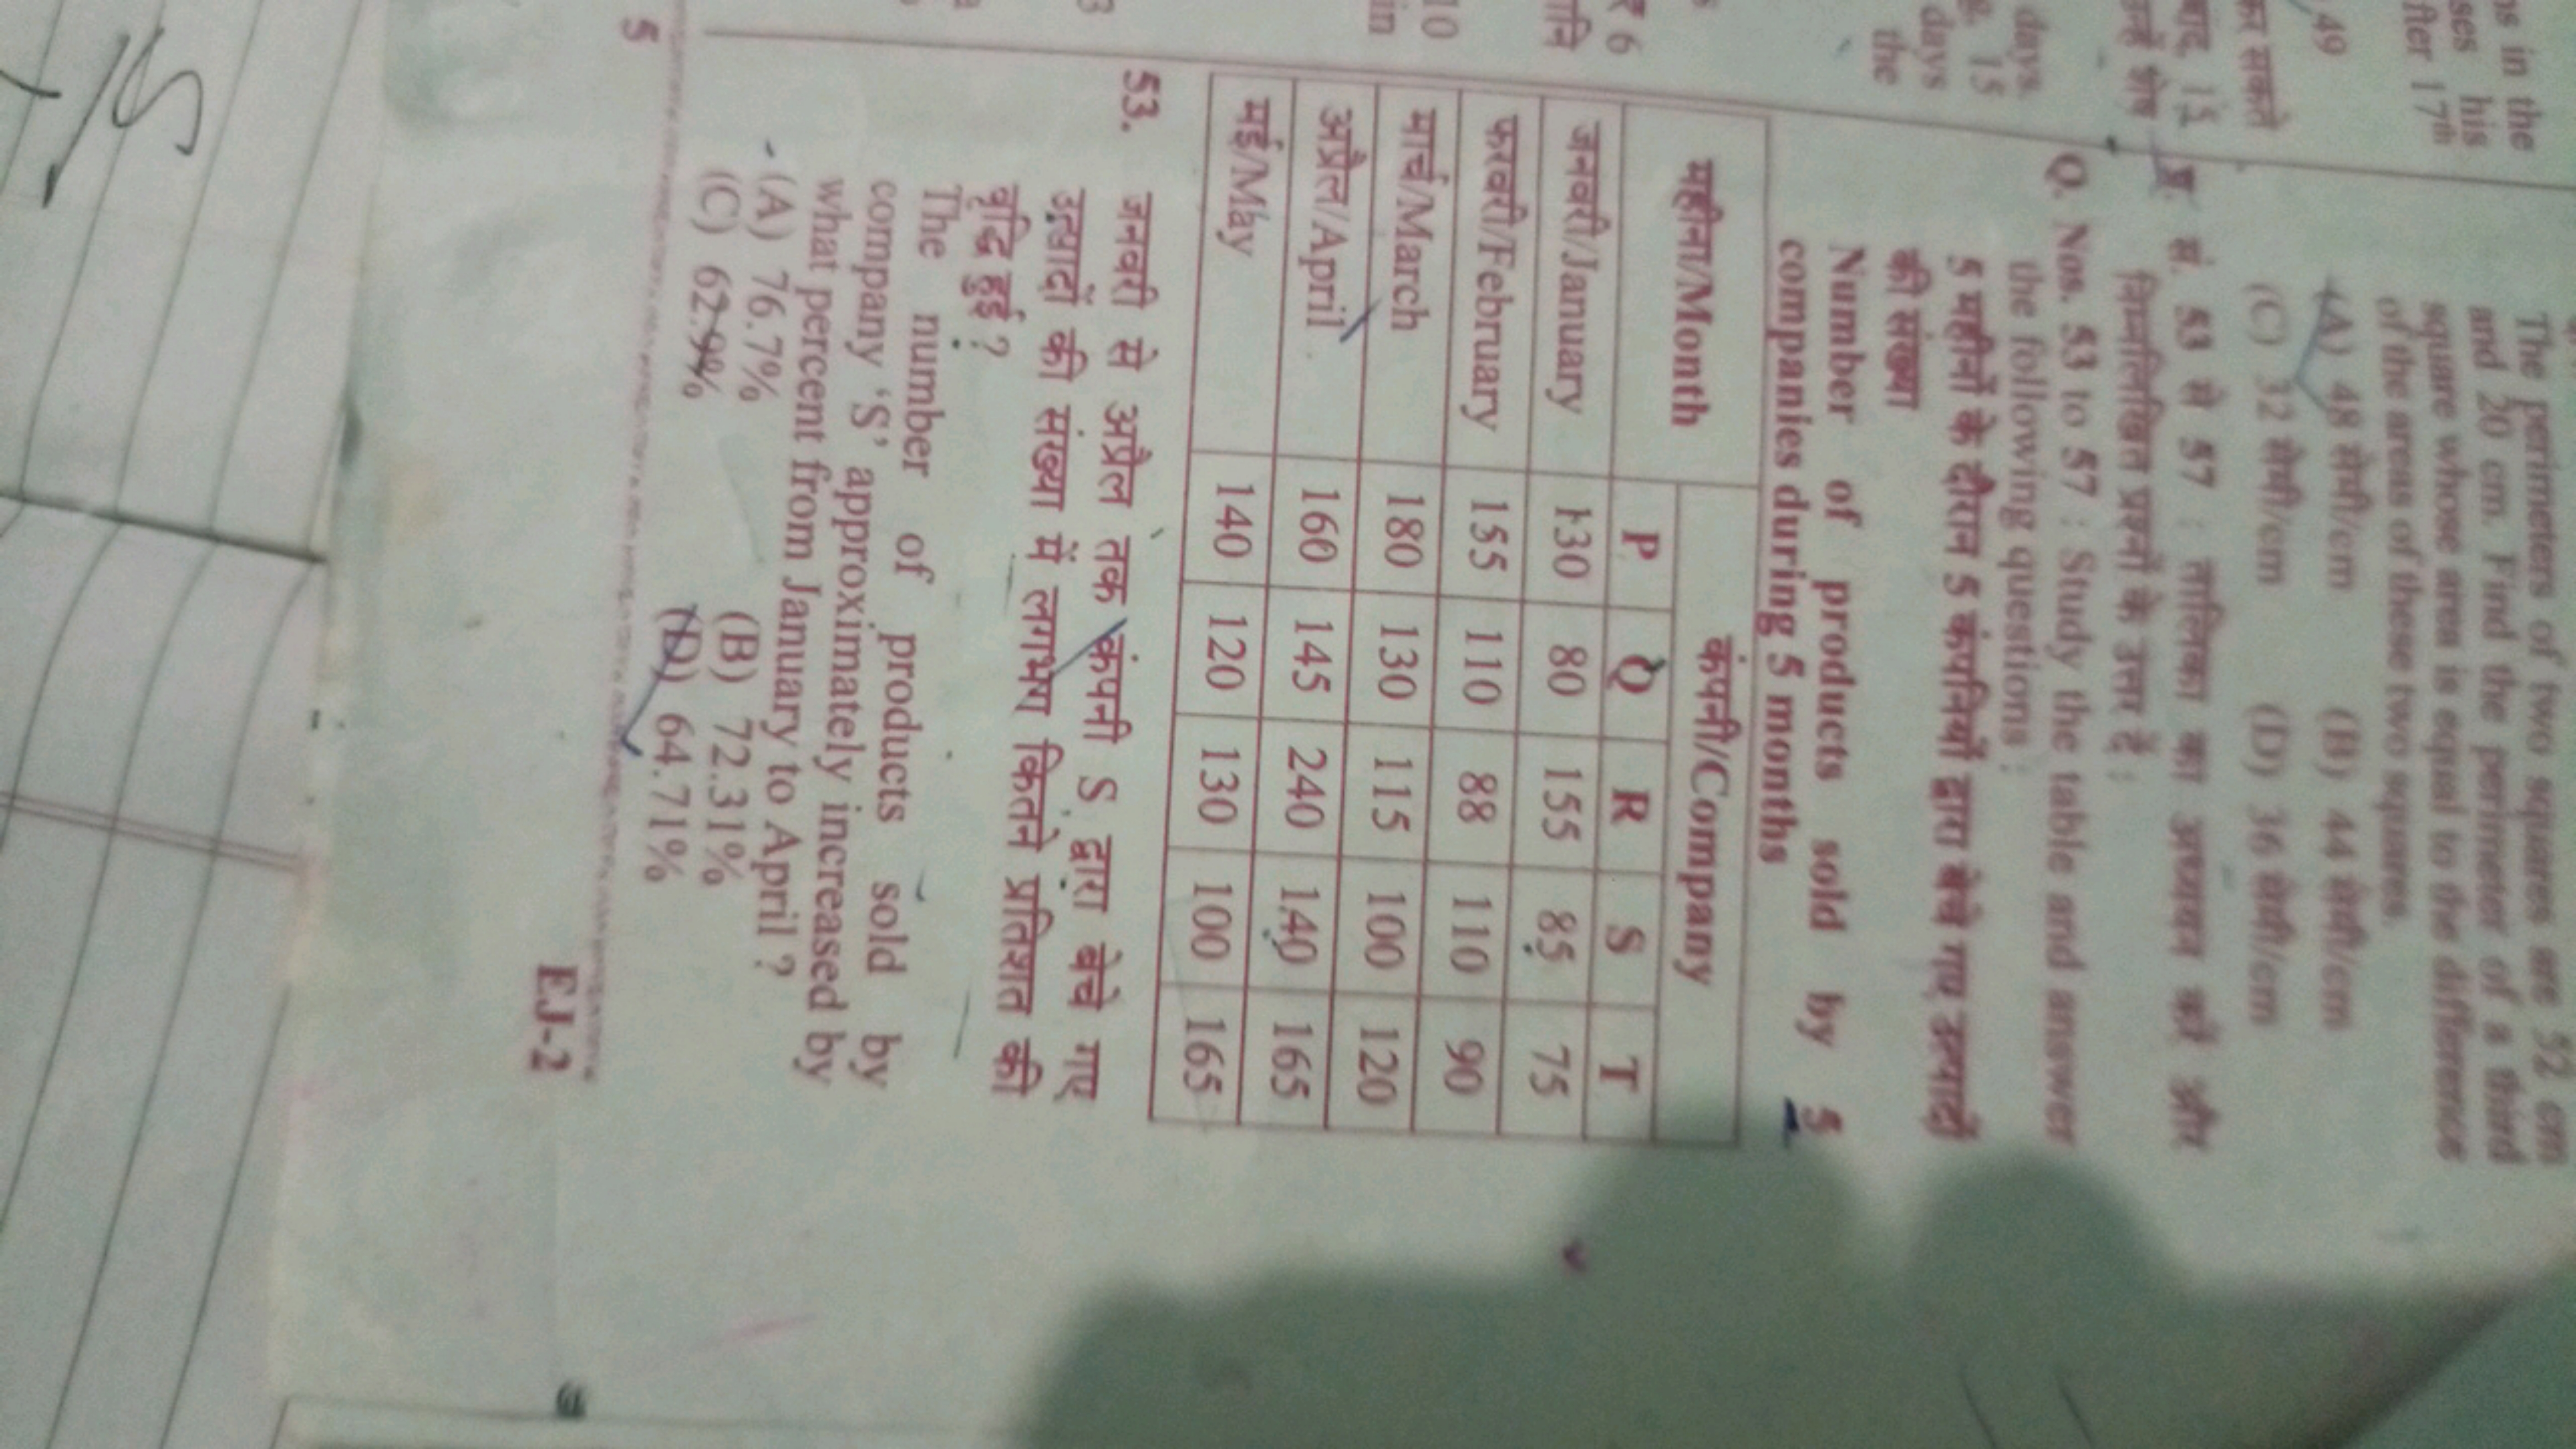 ns in the
ses his
fter 17th
49
कर सकते
बाद, 15
days.
15
days
the
र 6
10
in
The perimeters of two squares are 52 cm
and 20 cm. Find the perimeter of a third
square whose area is equal to the difference
of the areas of these two squares.
(A) 48 सेमी/cm (B) 44 सेमी/cm
(C) 32 सेमी/cm (D) 36 सेमी/cm
प्र. सं. 53 से 57 : तालिका का अध्ययन करें और
निम्नलिखित प्रश्नों के उत्तर दें :
Q. Nos. 53 to 57 : Study the table and answer
the following questions :
5 महीनों के दौरान 5 कंपनियों द्वारा बेचे गए उत्पादों
की संख्या
Number of products sold by 5
companies during 5 months
महीना/Month कंपनी/Company
P Q R S T
जनवरी/January 130 80 155 85 75
फरवरी/February 155 110 88 110 90
मार्च/March 180 130 115 100 120
अप्रैल/April 160 145 240 140 165
मई/May 140 120 130 100 165
53. जनवरी से अप्रैल तक कंपनी S द्वारा बेचे गए
उत्पादों की संख्या में लगभग कितने प्रतिशत की
वृद्धि हुई ?
The number of products sold by
company 'S' approximately increased by
what percent from January to April ?
(A) 76.7% (B) 72.31%
(C) 62.9% (D) 64.71%
5 EJ-2